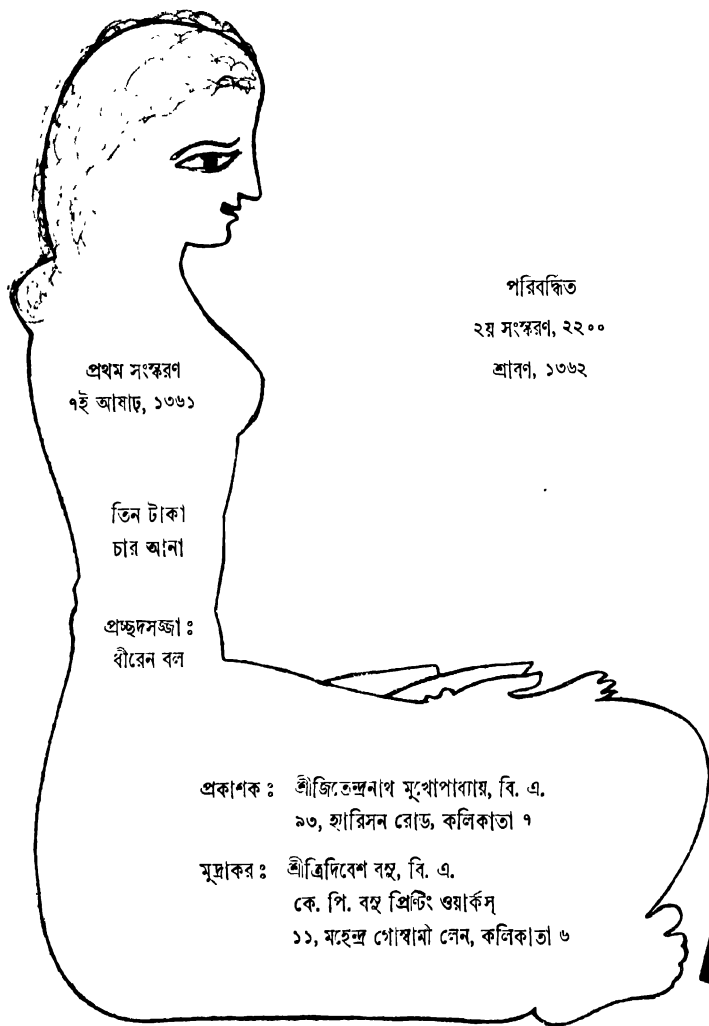 পরিবর্দ্ধিত
২য় সংস্করণ, ২২০০
শ্রাবণ, ১৩৬২
প্রথম সংস্করণ
৭ই আষাঢ়, ১৩৬১
তিন টাকা
চার আনা
প্রচ্ছদসজ্জা :
ধীরেন বল
প্রকাশক : শ্রীজিতেন্দ্রনাথ মুখোপাধ্যায়, বি. এ.
৯৩, হ্যারিসন রোড, কলিকাতা ৭
মুদ্রাকর : শ্রীত্রিদিবেশ বসু, বি. এ.
কে. পি. বসু প্রিন্টিং ওয়ার্কস্
১১, মহেন্দ্র গোস্বামী লেন, কলিকাতা ৬